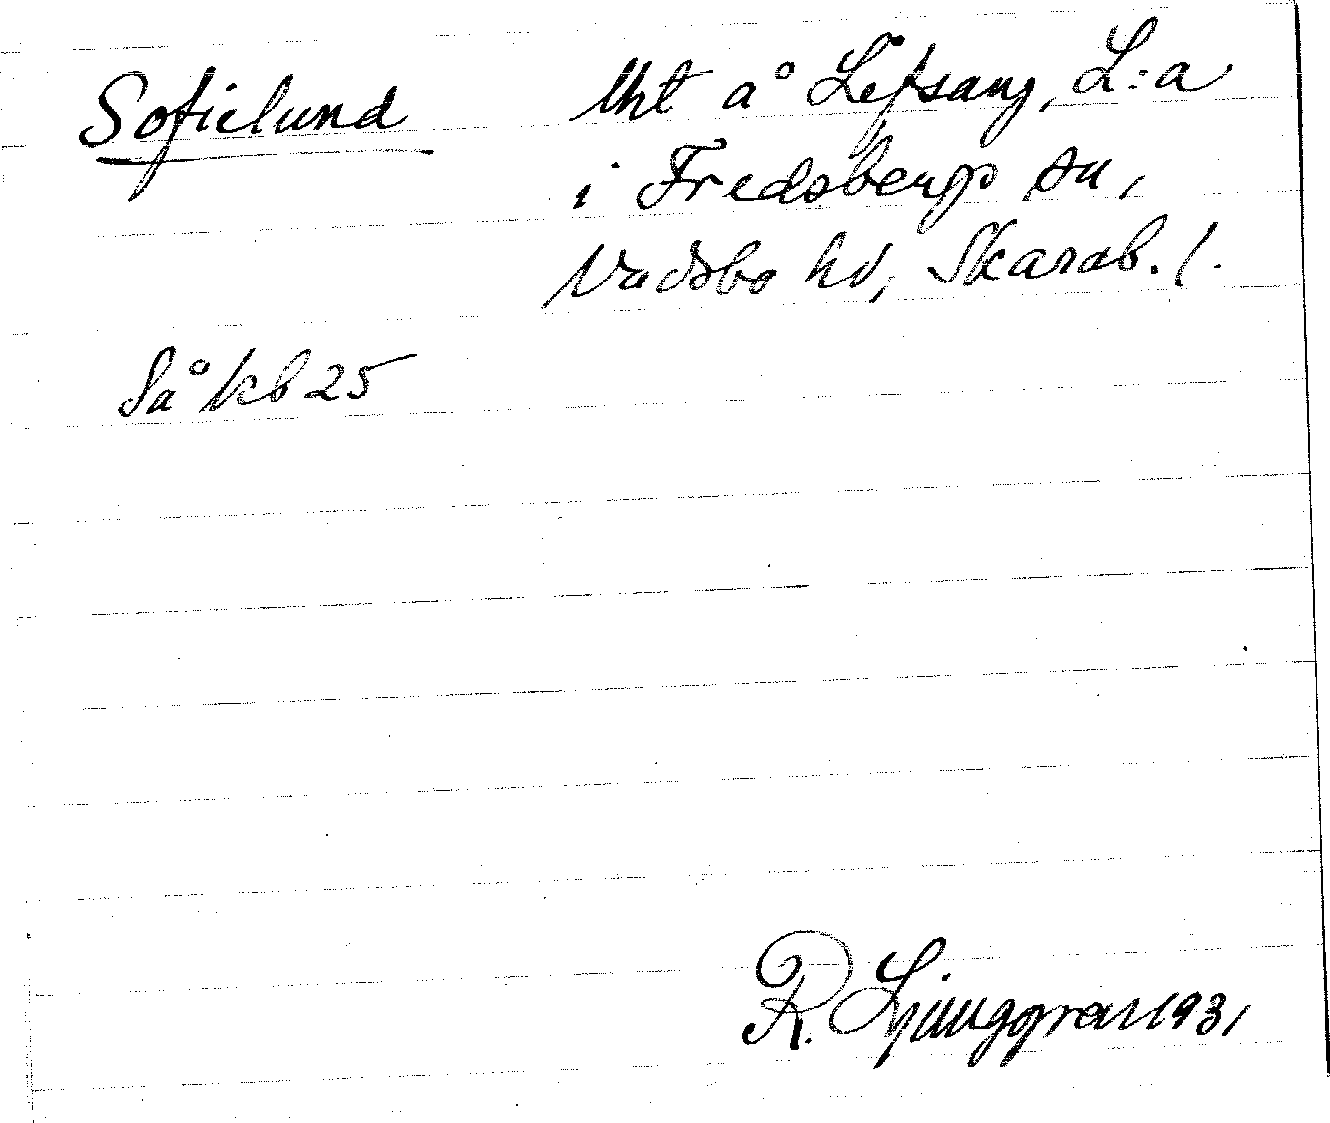 Sofielund lht å Lefsäng, L:a
i Fredsbergs sn,
Vadsbo hd, Skarab. l.
Så kb 25
R. Ljunggren 1931